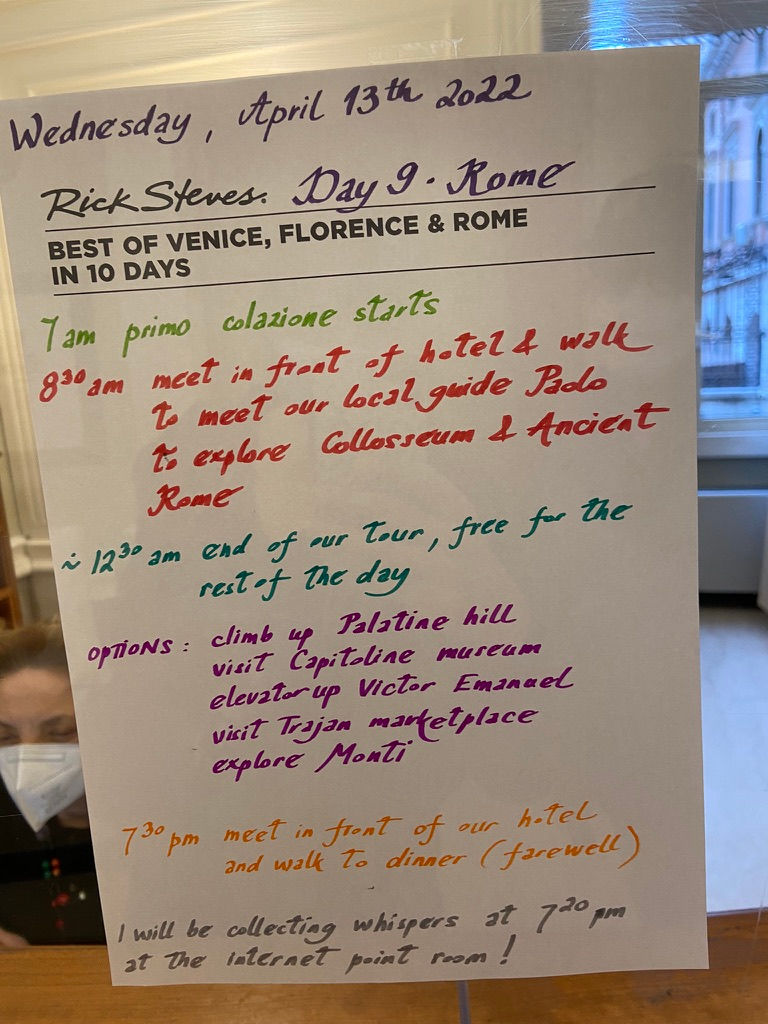 Wednesday, April 13th 2022
Rick Steves. Day 9 · Rome
BEST OF VENICE, FLORENCE & ROME
IN 10 DAYS
7am primo colazione starts
8³⁰am meet in front of hotel & walk
to meet our local guide Paolo
to explore Collosseum & Ancient
Rome
~ 12³⁰ am end of our tour, free for the
rest of the day
OPTIONS: climb up Palatine hill
visit Capitoline museum
elevator up Victor Emanuel
visit Trajan marketplace
explore Monti
7³⁰ pm meet in front of our hotel
and walk to dinner (farewell)
I will be collecting whispers at 7²⁰ pm
at the internet point room!